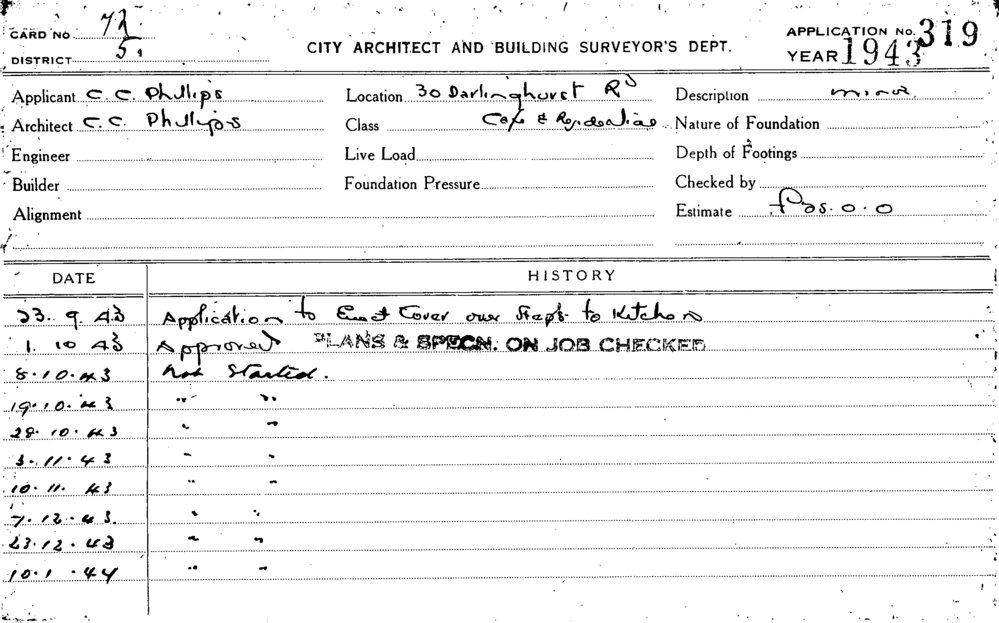 CARD NO. 72
DISTRICT 5.
CITY ARCHITECT AND BUILDING SURVEYOR'S DEPT.
APPLICATION No. 319
YEAR 1943
Applicant C. C. Phillips
Location 30 Darlinghurst Rd
Description minor
Architect C. C. Phillips
Class Cafe & Residential
Nature of Foundation
Engineer
Live Load
Depth of Footings
Builder
Foundation Pressure
Checked by
Alignment
Estimate £25.0.0
DATE HISTORY
23. 9. 43 Application to Erect Cover over Steps to Kitchen
1. 10 43 Approved PLANS & SPECN. ON JOB CHECKED
8.10.43 Not Started.
19.10.43 " "
28.10.43 " "
3.11.43 " "
10.11.43 " "
7.12.43. " "
23.12.43 " "
10.1.44 " "